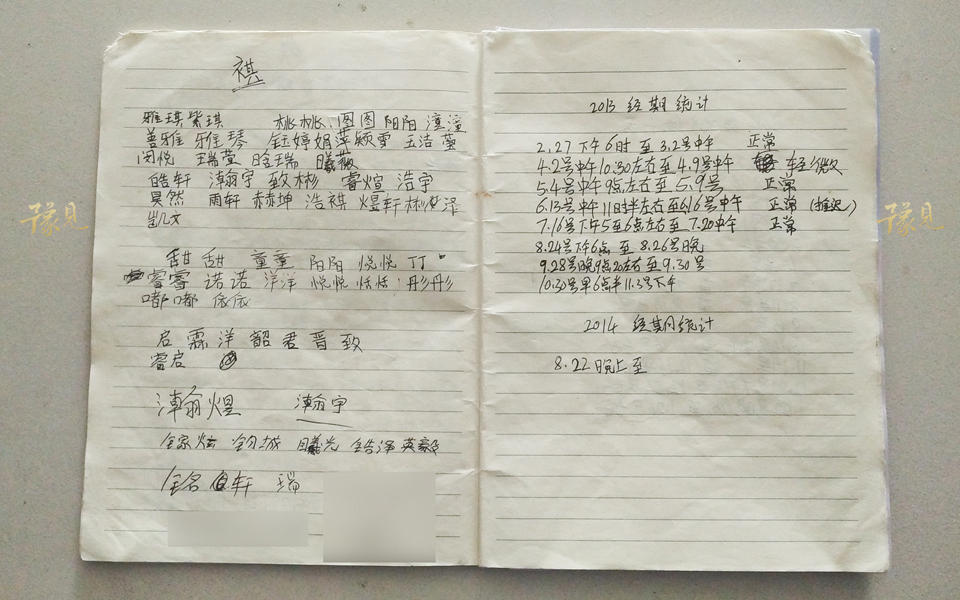 祺
雅琪 紫琪 桃桃、图图 阳阳 潼潼
善雅 雅琴 钰婷娟萍颖雪 玉洁 莹
闵悦 瑞莹 晗瑞 曦薇
皓轩 瀚宇 致彬 睿煊 浩宇
昊然 雨轩 赫坤 浩祺 煜轩 彬 泽
甜甜 童童 阳阳 悦悦 丁丁
睿睿 诺诺 洋洋 悦悦 恬恬 彤彤
嘟嘟 依依
启 霖 洋 韶 君 晋 致
睿启
瀚煜 瀚宇
家炫 城 曦光 浩泽 英毅
轩 瑞
2013 经期统计
2.27下午6时至3.2号中午 正常
4.2号中午10:30左右至4.9号中午 轻微
5.4号中午9点左右至5.9号 正常
6.13号中午11时半左右至6.16号中午 正常(推迟)
7.16号下午5至6点左右至7.20中午 正常
8.24号下午6点至8.26号晚
9.28号晚9点20左右至9.30号
10.30号早6点半11.3号下午
2014 经期统计
8.22晚上至
豫见
豫见